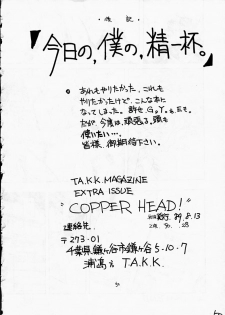 ・後記・
『今日の,僕の,精一杯。』
あれもやりたかった、これも
やりたかったけど、こんな本に
なってしまった。許せ、G。Y。も、Eも。
だが、今度は、頑張る。頭も
使いたい…。
皆様、御期待下さい。
T.A.K.K. MAGAZINE
EXTRA ISSUE
"COPPER HEAD!"
初版発行 89.8.13
連絡先
〒273-01
千葉県鎌ヶ谷市鎌ヶ谷5-10-7
T.A.K.K.